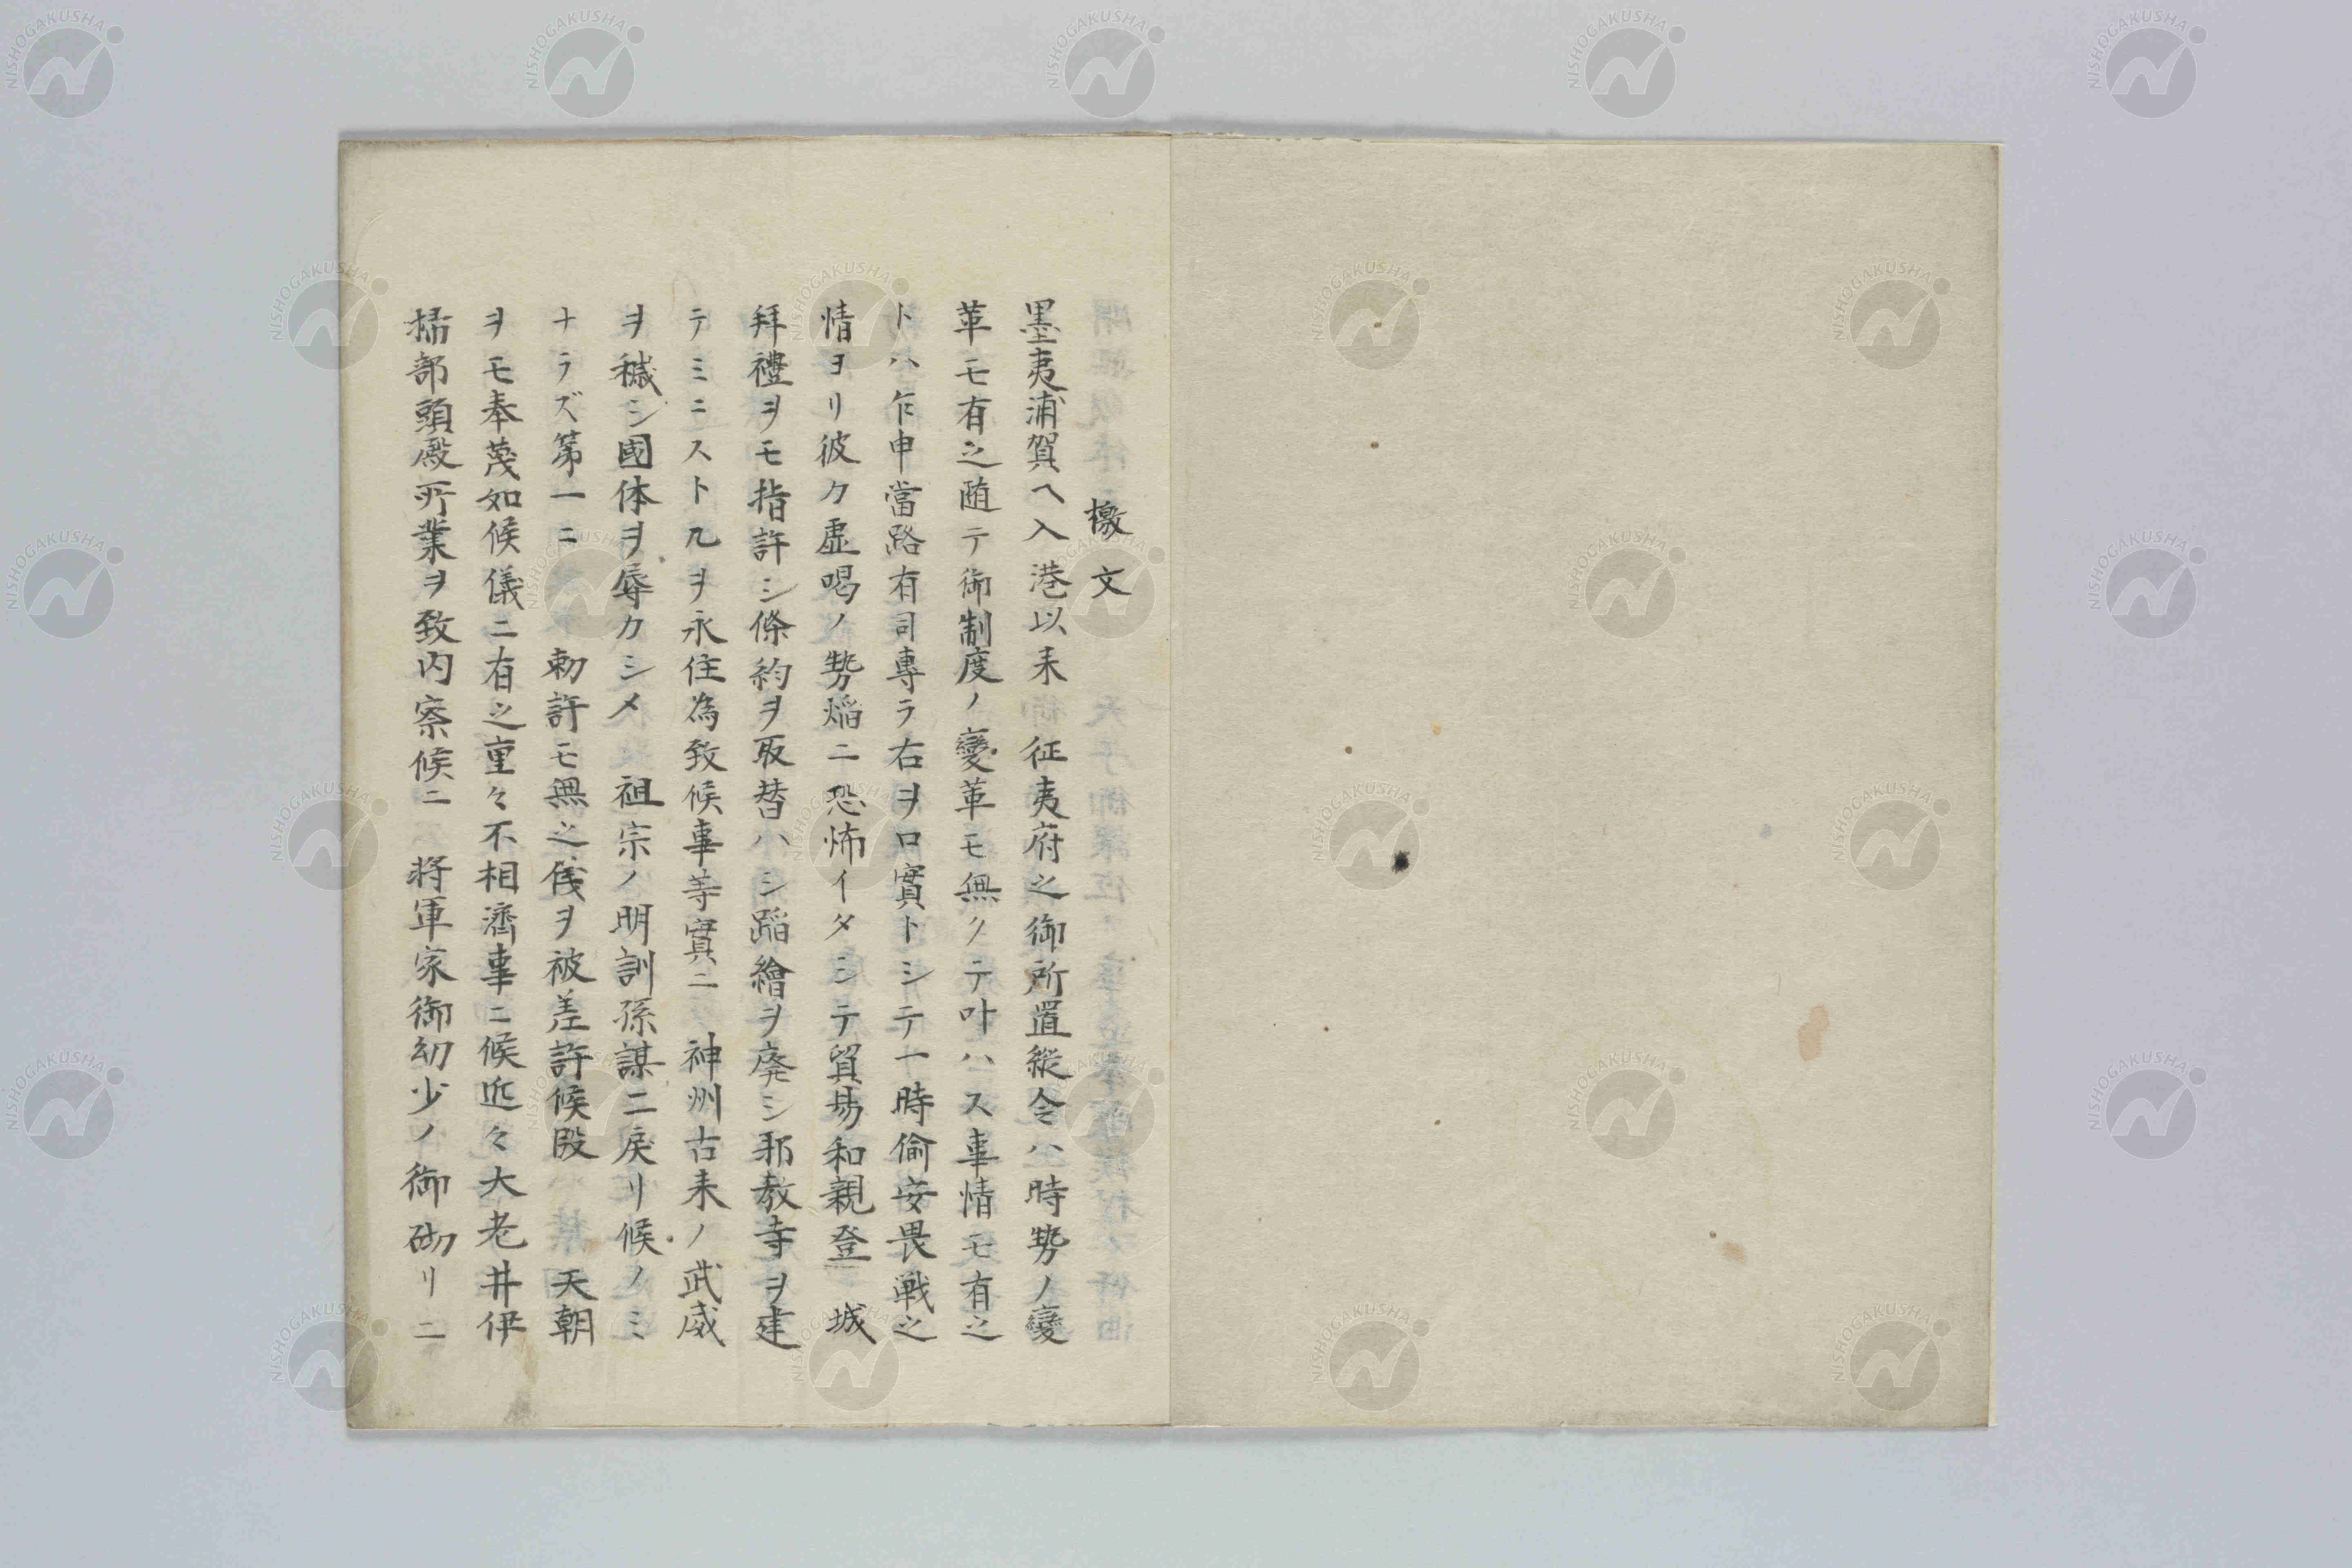 檄文
墨夷浦賀ヘ入港以来　征夷府之御所置縦令ハ時勢ノ變
革モ有之随テ御制度ノ變革モ無クテ叶ハス事情モ有之
トハ乍申當路有司専ラ右ヲ口實トシテ一時偷安畏戦之
情ヨリ彼カ虚喝ノ勢焔ニ恐怖イタシテ貿易和親登　城
拜禮ヲモ指許シ條約ヲ取替ハシ蹈繪ヲ廃シ邪教寺ヲ建
テミニストルヲ永住為致候事等實ニ　神州古来ノ武威
ヲ穢シ國体ヲ辱カシメ　祖宗ノ明訓孫謀ニ戻リ候ノミ
ナラズ第一ニ　勅許モ無之儀ヲ被差許候段　天朝
ヲモ奉蔑如候儀ニ有之重々不相濟事ニ候近々大老井伊
掃部頭殿所業ヲ致内察候ニ　将軍家御幼少ノ御砌リニ
NISHOGAKUSHA